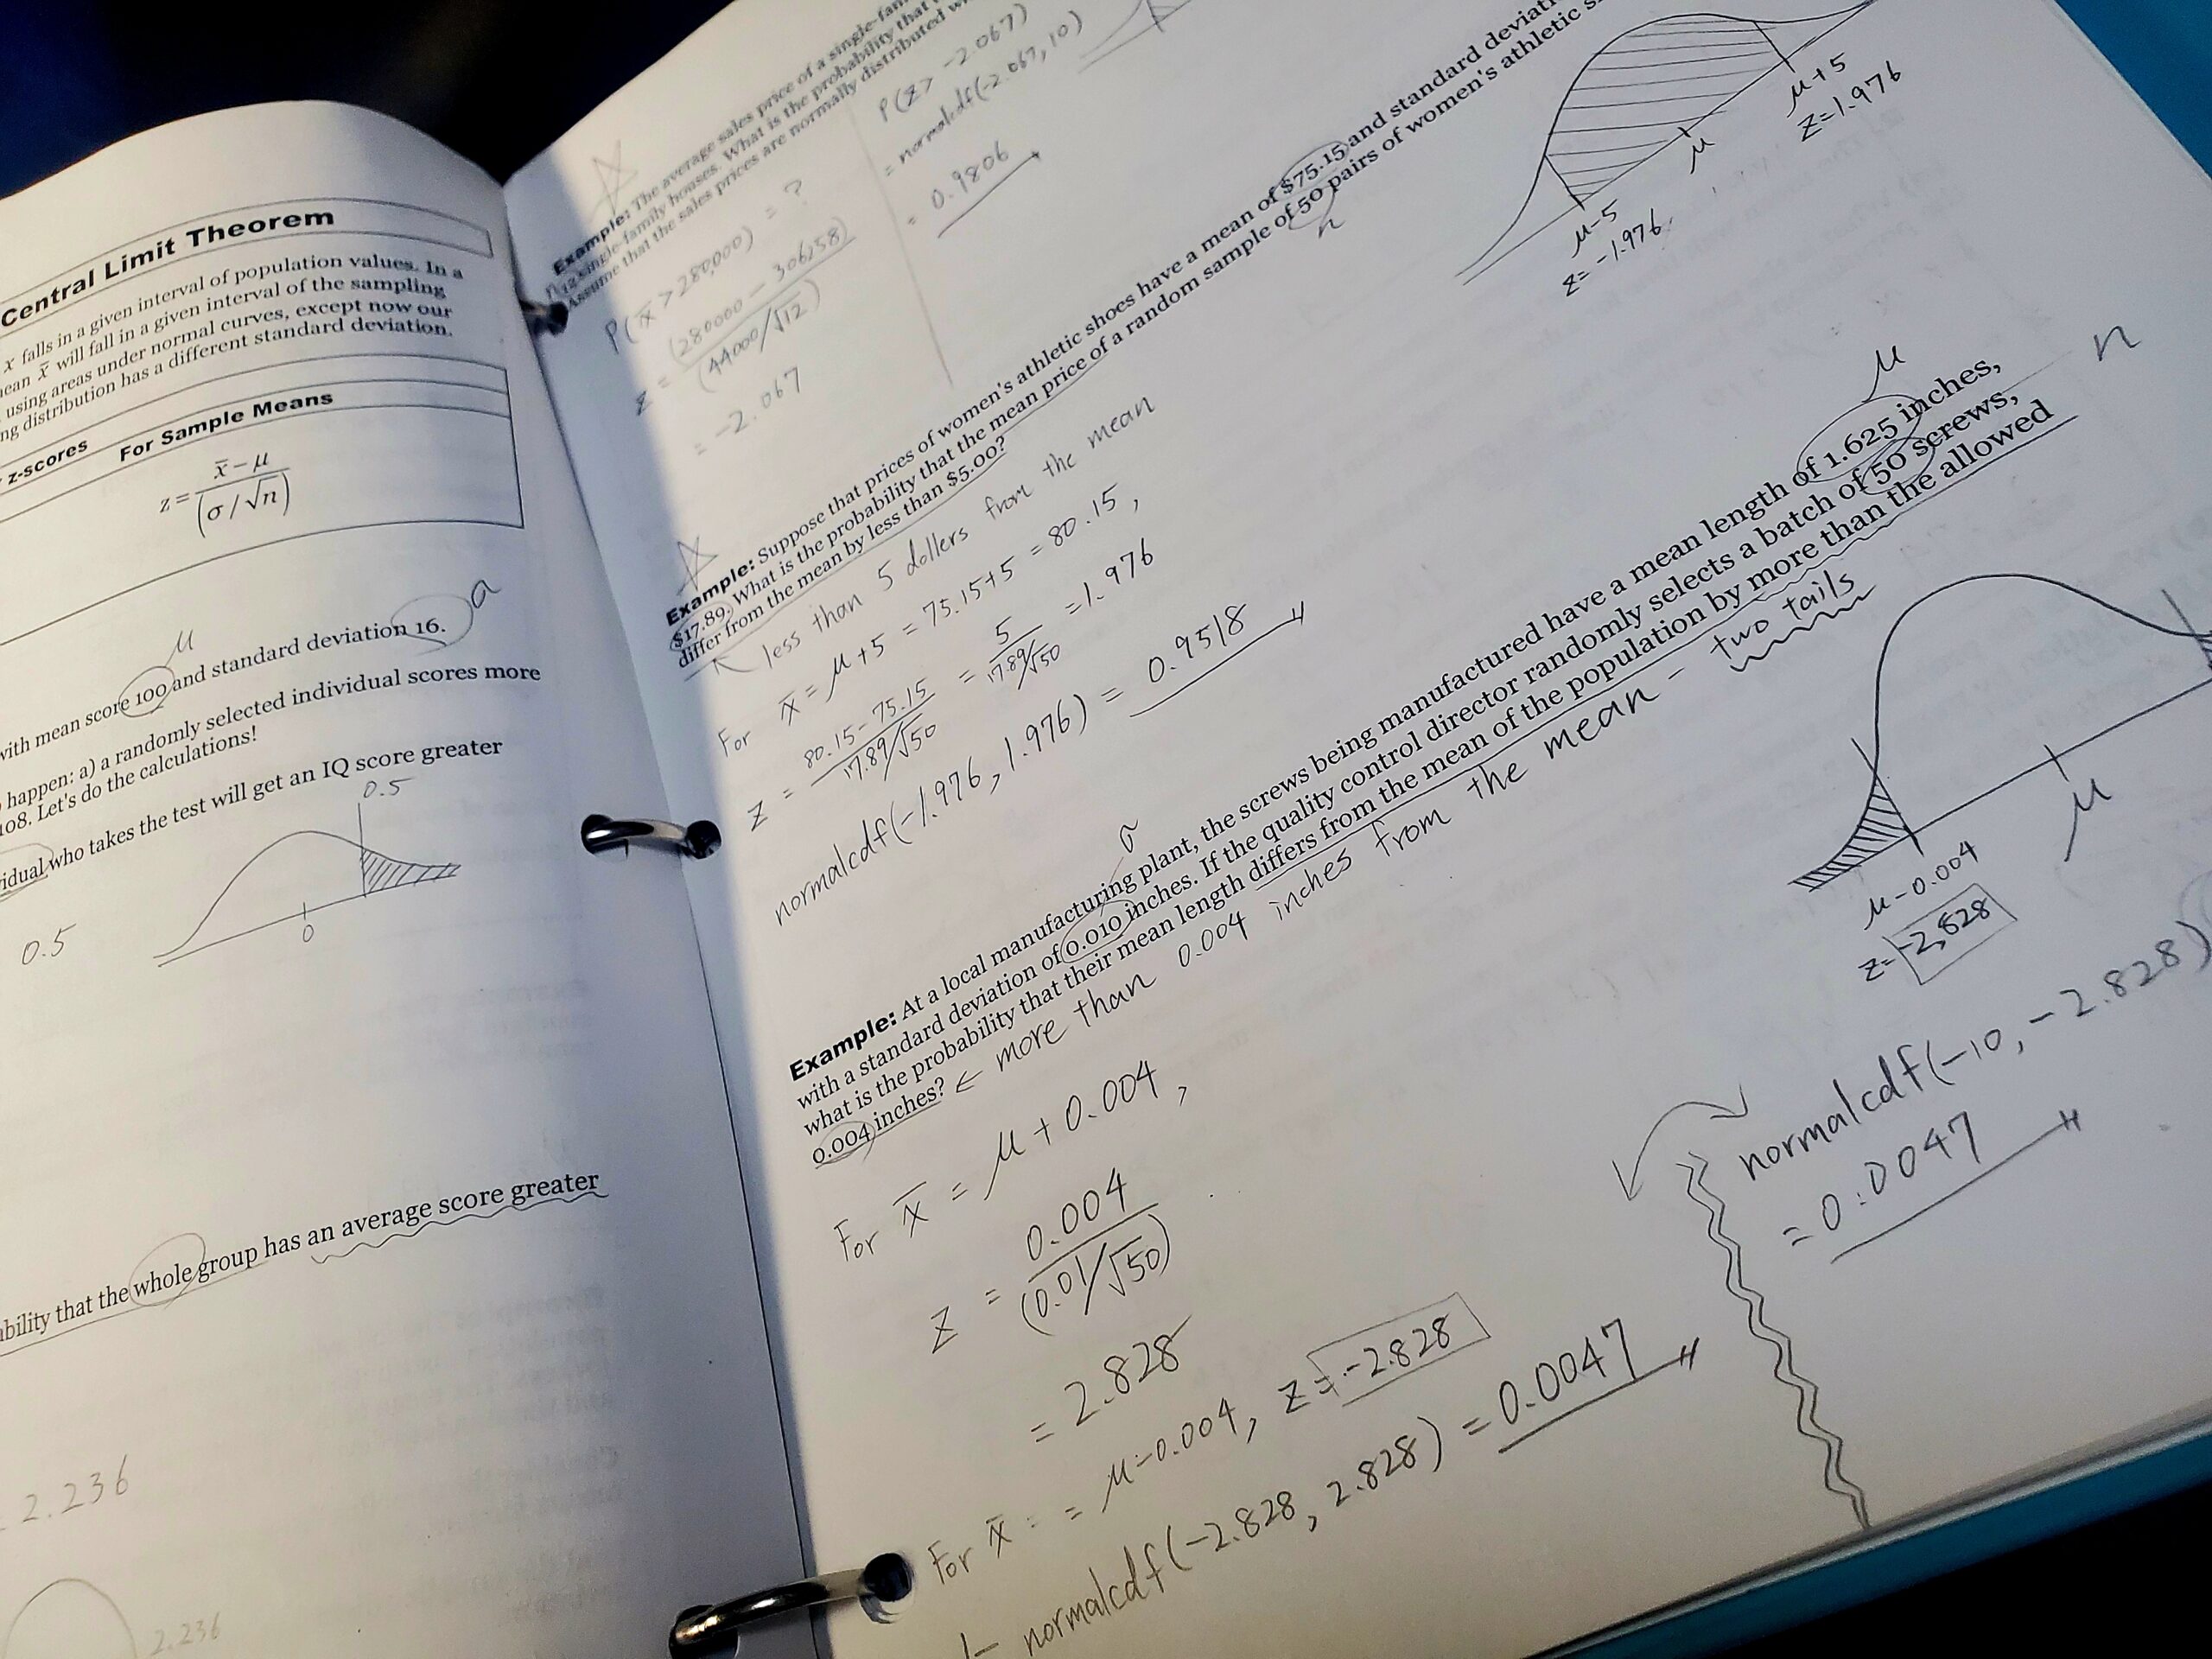 Central Limit Theorem
x falls in a given interval of population values. In a
mean x̄ will fall in a given interval of the sampling
using areas under normal curves, except now our
ng distribution has a different standard deviation.
z-scores For Sample Means
z = (x̄ − μ) / (σ/√n)
μ
with mean score 100 and standard deviation 16.
happen: a) a randomly selected individual scores more
108. Let's do the calculations!
vidual who takes the test will get an IQ score greater
0.5
0.5
0
ability that the whole group has an average score greater
2.236
2.236
Example: The average sales price of a single-fam
12 single-family houses. What is the probability that
Assume that the sales prices are normally distributed
P(x̄ > 280,000) = ?
z = (280000 − 306258) / (44000/√12)
= −2.067
P(z > −2.067)
= normalcdf(−2.067, 10)
= 0.9806
Example: Suppose that prices of women's athletic shoes have a mean of $75.15 and standard deviati
$17.89. What is the probability that the mean price of a random sample of 50 pairs of women's athletic s
differ from the mean by less than $5.00?
n
less than 5 dollers from the mean
For x̄ = μ+5 = 75.15+5 = 80.15,
z = (80.15−75.15) / (17.89/√50) = 5 / (17.89/√50) = 1.976
normalcdf(−1.976, 1.976) = 0.9518
μ+5
z=1.976
μ
μ−5
z=−1.976
σ
μ
n
Example: At a local manufacturing plant, the screws being manufactured have a mean length of 1.625 inches,
with a standard deviation of 0.010 inches. If the quality control director randomly selects a batch of 50 screws,
what is the probability that their mean length differs from the mean of the population by more than the allowed
0.004 inches? ← more than 0.004 inches from the mean - two tails
For x̄ = μ + 0.004,
z = 0.004 / (0.01/√50)
= 2.828
For x̄ = μ−0.004, z = −2.828
1− normalcdf(−2.828, 2.828) = 0.0047
μ
μ−0.004
z=−2.828
normalcdf(−10, −2.828)
= 0.0047